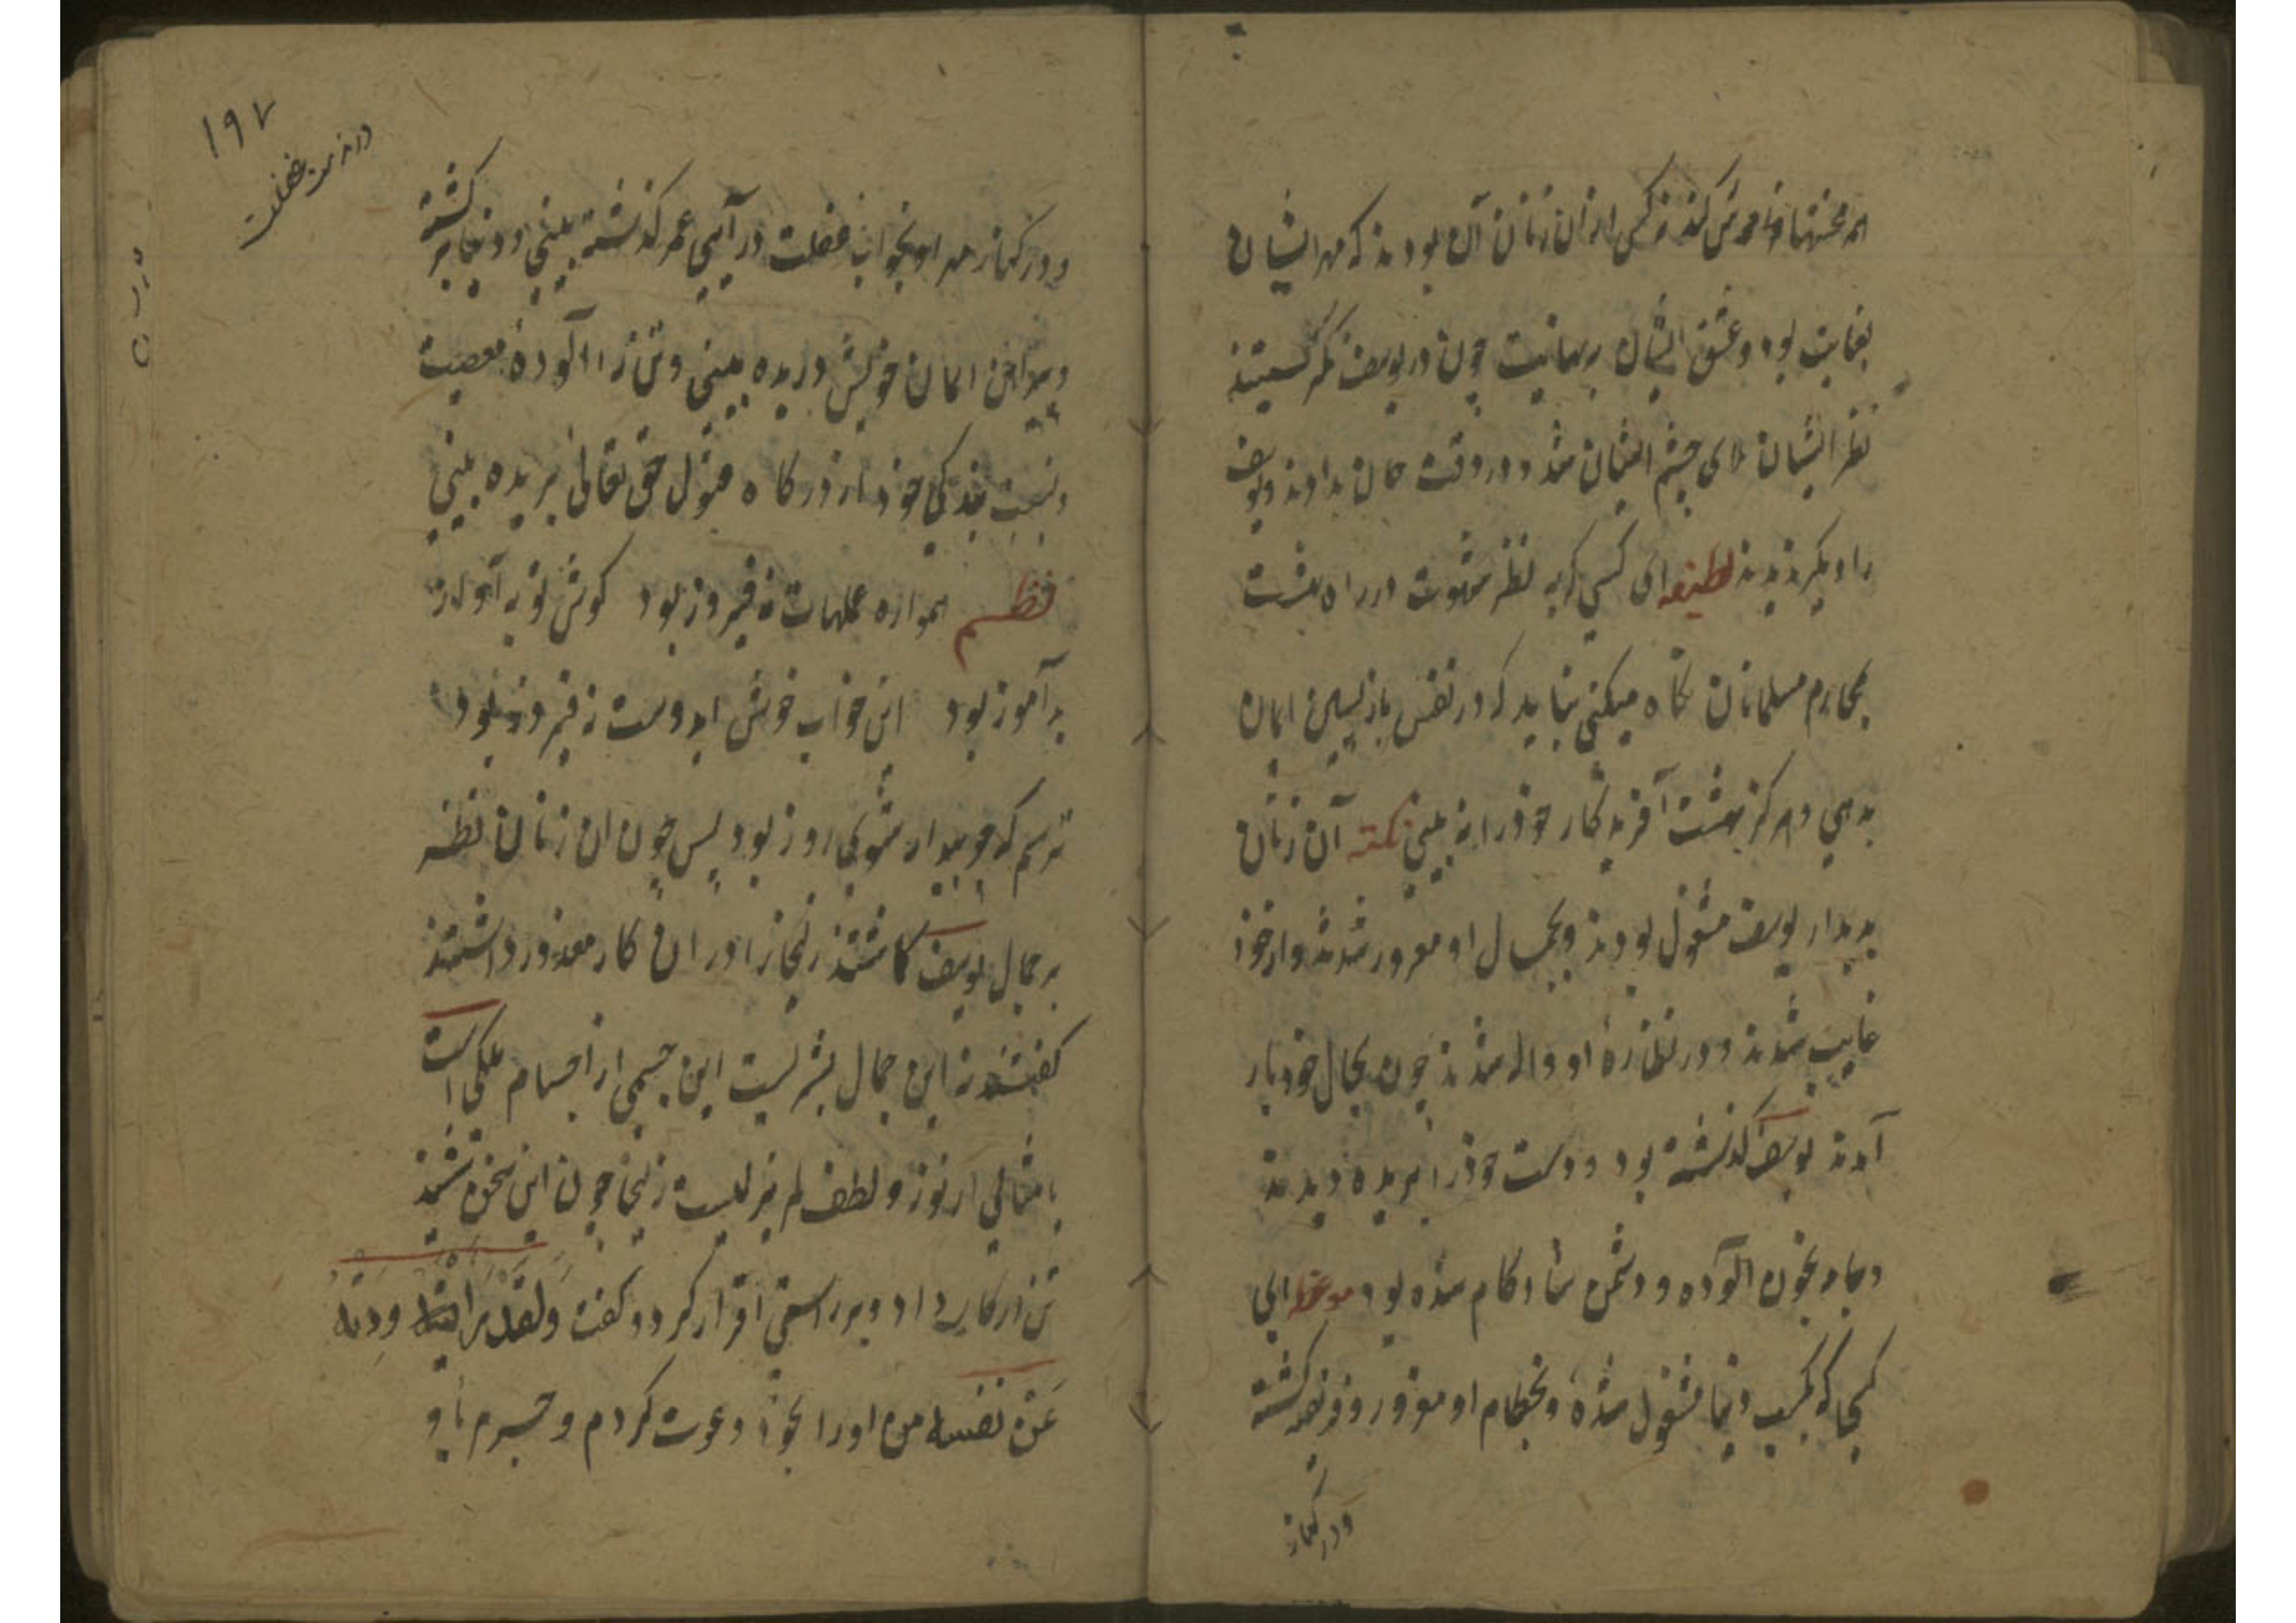 همه محنتها فراموش کند نرگس از آن زنان آن بودند که مهر ایشان
بغایت بود و عشق ایشان بی نهایت چون در یوسف نگریستند
نظر ایشان بلای چشم ایشان شد و در وقت جان بدادند و یوسف
را دیگر ندیدند لطیفه ای کسی که به نظر شهوت در راه بشریت
بمحارم مسلمانان نگاه میکنی نباید که در نفس بازپسین ایمان
بدهی و هرگز بهشت آفریدگار خود را نه بینی نکته آن زنان
بدیدار یوسف مشغول بودند و بجمال او مغرور شدند و از خود
غایب شدند و در نظاره او واله شدند چون بحال خود باز
آمدند یوسف گذشته بود و دست خود را بریده دیدند
و جامه بخون آلوده و دشمن شادکام شده بود موعظه ای
کسی که بکسب دنیا مشغول شده و بحطام او مغرور و فریفته گشته
و در کنار
۱۹۷
در مذمت غفلت
و در کنار مهر او بخواب غفلت در آیی عمر گذشته بینی و دنیا برگشته
و پیراهن ایمان خویش دریده بینی و تن را آلوده معصیت
و نسبت بندگی خود از درگاه قبول حق تعالی بریده بینی
نظم همواره عملهات نه فیروز بود گوش تو به آواز
بدآموز بود این خواب خوش ای دوست نه فیروز بود
ترسم که چو بیدار شوی روز بود پس چون آن زنان نظر
بر جمال یوسف گماشتند زلیخا را در آن کار معذور داشتند
گفتند نه این جمال بشریست این جسمی از اجسام ملکی است
یا مثالی از نور و لطف لم یزلیست زلیخا چون این سخن شنید
تن در کار داد و برراستی اقرار کرد و گفت ولقد راودته
عن نفسه من او را بخود دعوت کردم و جرم با او